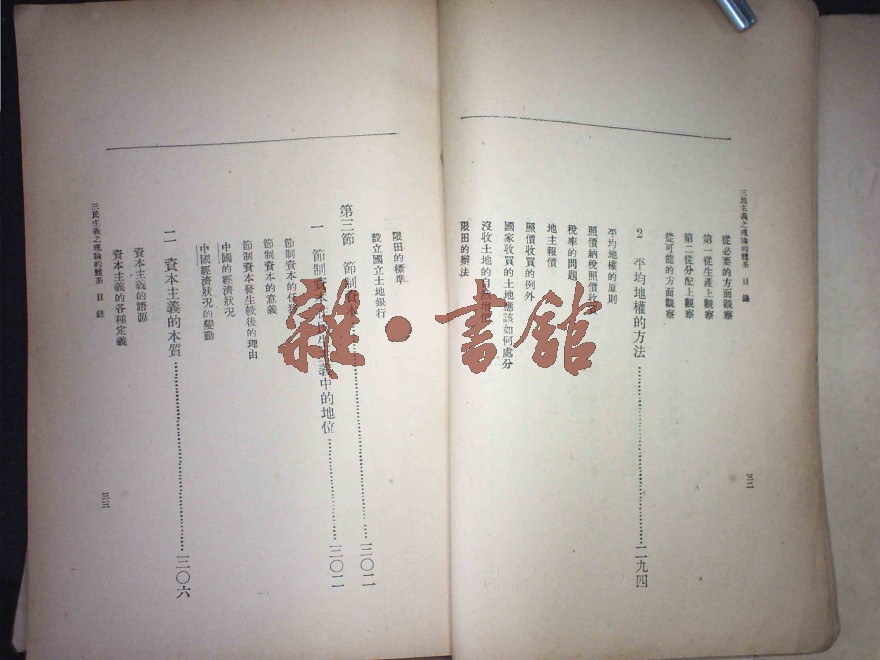 三民主義之理論的體系 目錄
從必要的方面觀察
第一從生產上觀察
第二從分配上觀察
從可能的方面觀察
2 平均地權的方法…………二九四
平均地權的原則
照價納稅照價收買
稅率的問題
地主報價
照價收買的例外
國家收買的土地應該如何處分
沒收土地的自然增價
限田的辦法
三二
限田的標準
設立國立土地銀行
第三節 節制資本…………三〇二
一 節制資本 中的地位…………三〇二
節制資本的
節制資本的意義
節制資本發生較後的理由
中國的經濟狀況
中國經濟狀況的變動
二 資本主義的本質…………三〇六
資本主義的語源
資本主義的各種定義
三民主義之理論的體系 目錄
三三
雜·書館